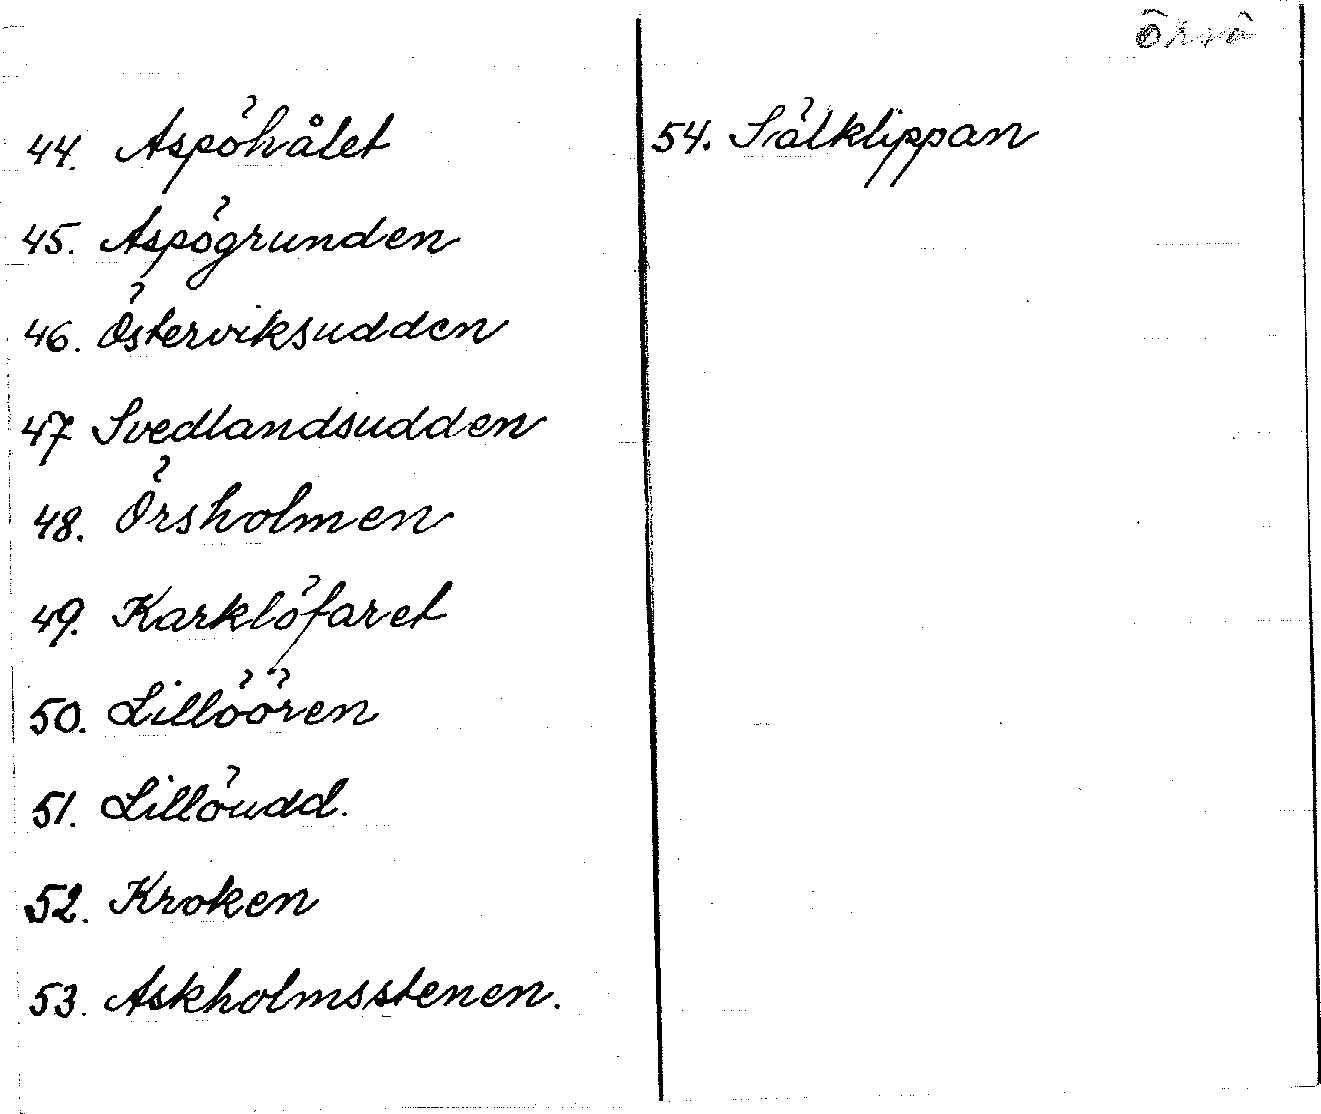 Örsö
44. Aspöhålet
45. Aspögrunden
46. Österviksudden
47 Svedlandsudden
48. Örsholmen
49. Karklöfaret
50. Lillöören
51. Lillöudd.
52. Kroken
53. Askholmsstenen.
54. Sälklippan